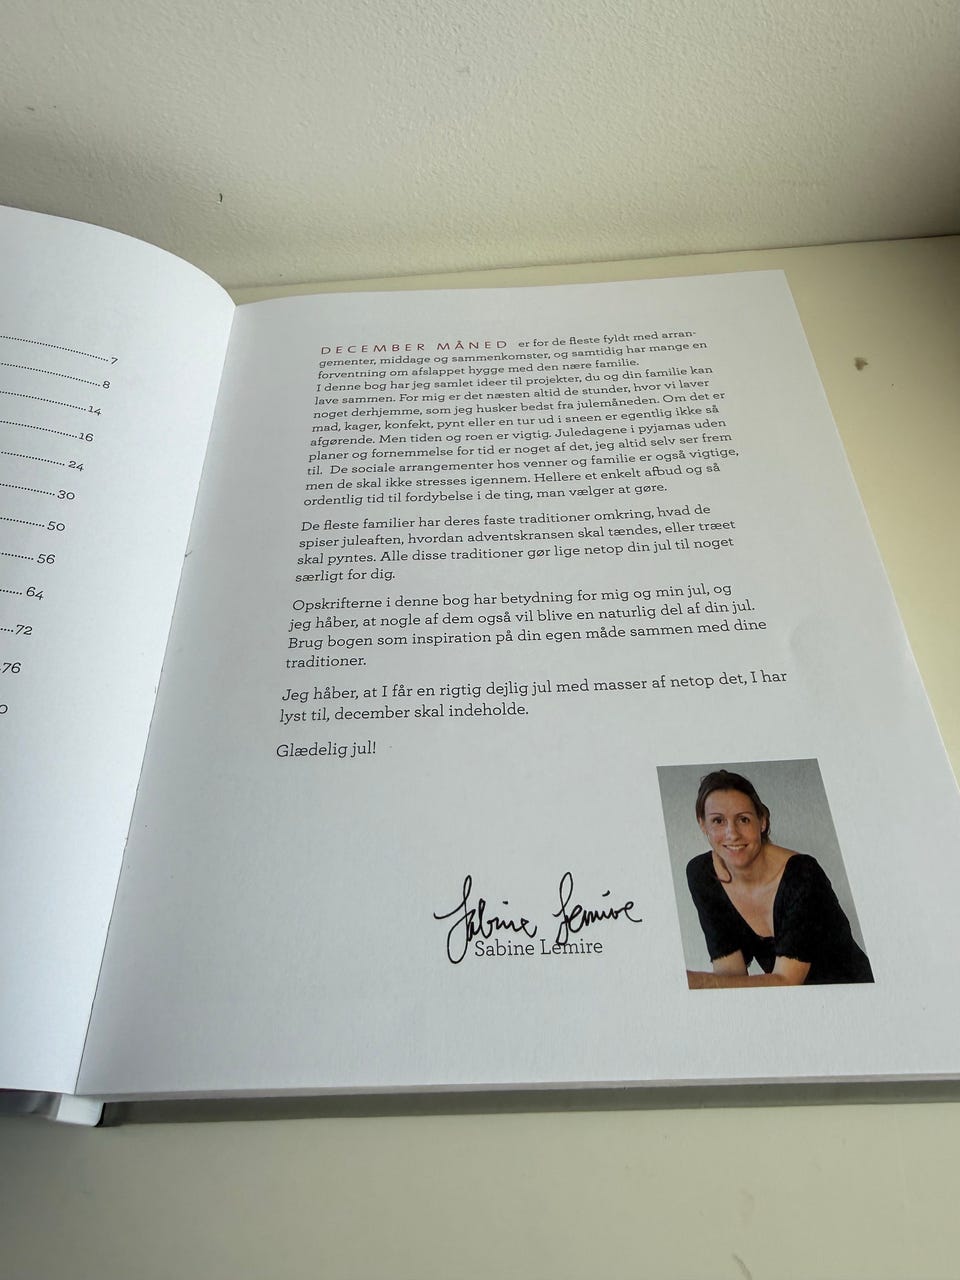 7
8
14
16
24
30
50
56
64
72
76
DECEMBER MÅNED er for de fleste fyldt med arran-
gementer, middage og sammenkomster, og samtidig har mange en
forventning om afslappet hygge med den nære familie.
I denne bog har jeg samlet ideer til projekter, du og din familie kan
lave sammen. For mig er det næsten altid de stunder, hvor vi laver
noget derhjemme, som jeg husker bedst fra julemåneden. Om det er
mad, kager, konfekt, pynt eller en tur ud i sneen er egentlig ikke så
afgørende. Men tiden og roen er vigtig. Juledagene i pyjamas uden
planer og fornemmelse for tid er noget af det, jeg altid selv ser frem
til. De sociale arrangementer hos venner og familie er også vigtige,
men de skal ikke stresses igennem. Hellere et enkelt afbud og så
ordentlig tid til fordybelse i de ting, man vælger at gøre.
De fleste familier har deres faste traditioner omkring, hvad de
spiser juleaften, hvordan adventskransen skal tændes, eller træet
skal pyntes. Alle disse traditioner gør lige netop din jul til noget
særligt for dig.
Opskrifterne i denne bog har betydning for mig og min jul, og
jeg håber, at nogle af dem også vil blive en naturlig del af din jul.
Brug bogen som inspiration på din egen måde sammen med dine
traditioner.
Jeg håber, at I får en rigtig dejlig jul med masser af netop det, I har
lyst til, december skal indeholde.
Glædelig jul!
Sabine Lemire
Sabine Lemire